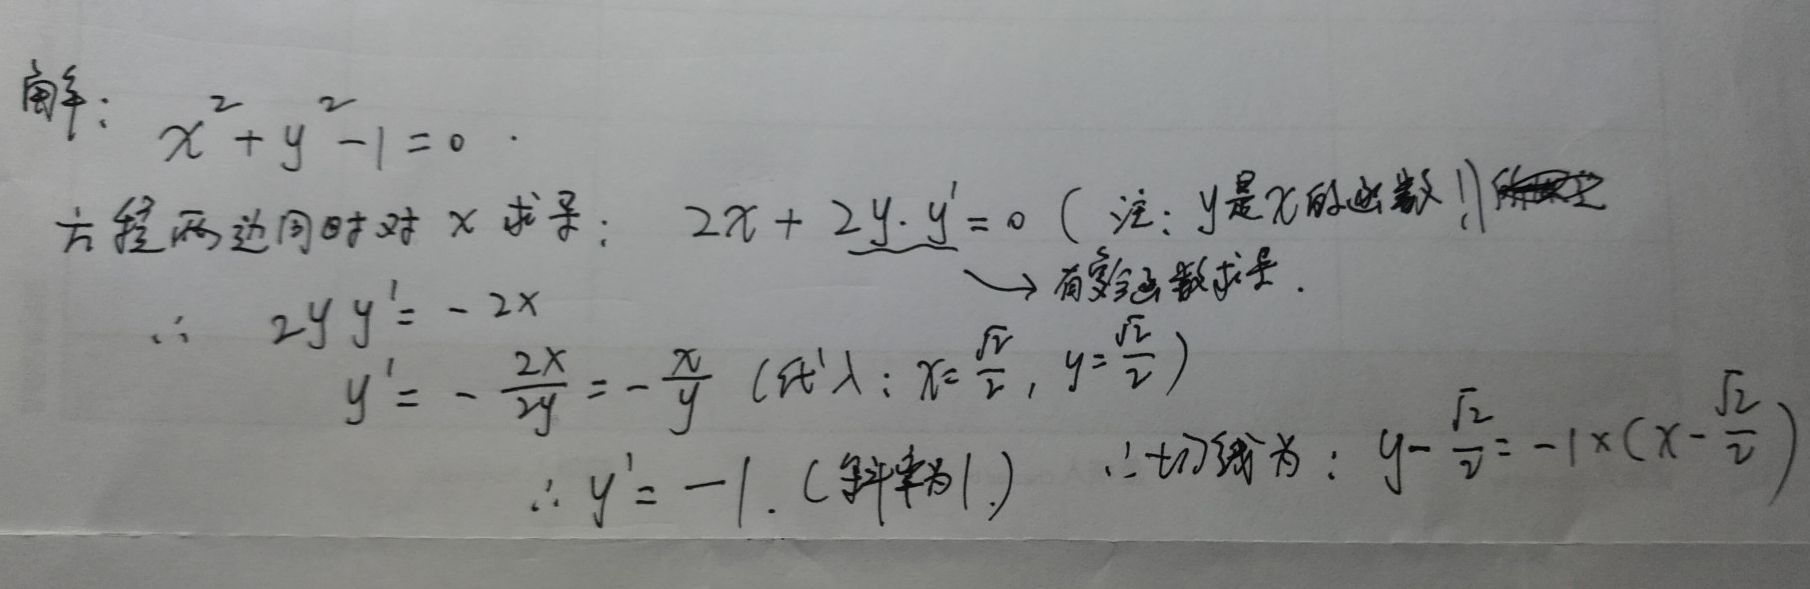 解: x²+y²-1=0.
方程两边同时对x求导: 2x+2y·y'=0 (注: y是x的函数!)
→有复合函数求导.
∴ 2yy'=-2x
y'=-\frac{2x}{2y}=-\frac{x}{y} (代入: x=\frac{√2}{2}, y=\frac{√2}{2})
∴y'=-1. (斜率为1.) ∴切线为: y-\frac{√2}{2}=-1×(x-\frac{√2}{2})